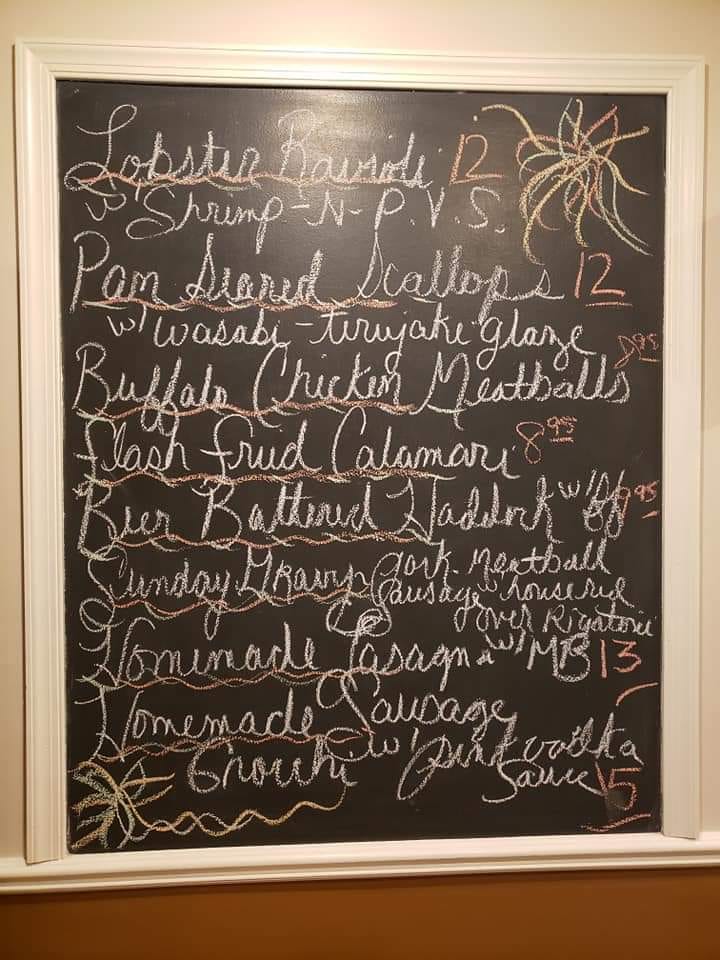 Lobster Ravioli 12
w/ Shrimp-N-P.V.S.
Pan Seared Scallops 12
w/ wasabi-teriyaki glaze
Buffalo Chicken Meatballs 8.95
Flash Fried Calamari 8.95
Beer Battered Haddock w/ FF 9.95
Sunday Gravy pork. meatball
Sausage house red
over Rigatoni
Homemade Lasagna w/ MB 13
Homemade Sausage
Gnocchi w/ pink vodka
Sauce 15